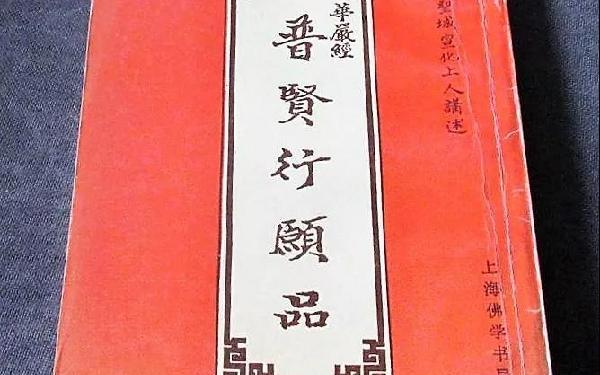 聖城宣化上人講述
華嚴經
普賢行願品
上海佛学书局